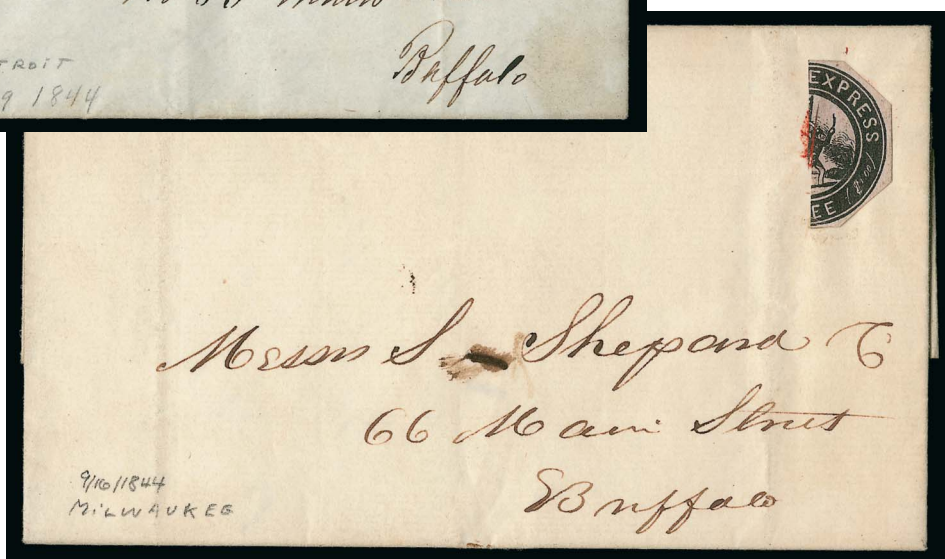 Buffalo
TROIT
9 1844
EXPRESS
EE
Messrs S. Shepard
66 Main Street
Buffalo
9/16/1844
MILWAUKEE